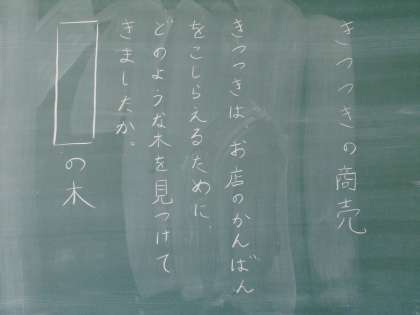 きつつきの商売
きつつきは お店のかんばん
をこしらえるために、
どのような木を見つけて
きましたか。
の木